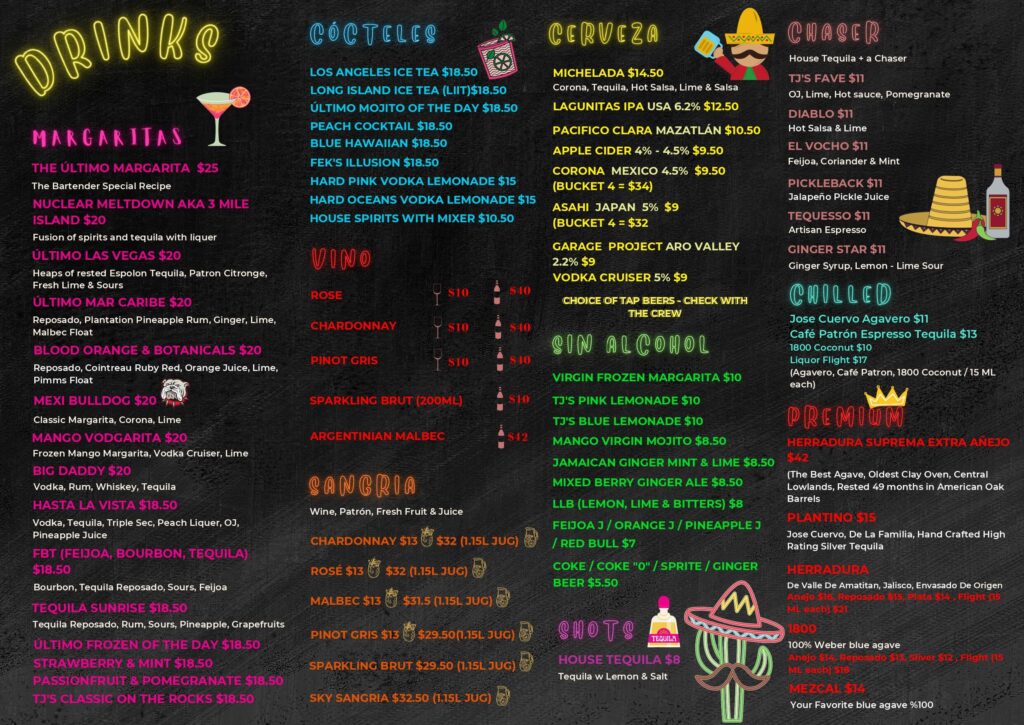 DRINKS
MARGARITAS
THE ÚLTIMO MARGARITA $25
The Bartender Special Recipe
NUCLEAR MELTDOWN AKA 3 MILE
ISLAND $20
Fusion of spirits and tequila with liquer
ÚLTIMO LAS VEGAS $20
Heaps of rested Espolon Tequila, Patron Citronge,
Fresh Lime & Sours
ÚLTIMO MAR CARIBE $20
Reposado, Plantation Pineapple Rum, Ginger, Lime,
Malbec Float
BLOOD ORANGE & BOTANICALS $20
Reposado, Cointreau Ruby Red, Orange Juice, Lime,
Pimms Float
MEXI BULLDOG $20
Classic Margarita, Corona, Lime
MANGO VODGARITA $20
Frozen Mango Margarita, Vodka Cruiser, Lime
BIG DADDY $20
Vodka, Rum, Whiskey, Tequila
HASTA LA VISTA $18.50
Vodka, Tequila, Triple Sec, Peach Liquer, OJ,
Pineapple Juice
FBT (FEIJOA, BOURBON, TEQUILA)
$18.50
Bourbon, Tequila Reposado, Sours, Feijoa
TEQUILA SUNRISE $18.50
Tequila Reposado, Rum, Sours, Pineapple, Grapefruits
ÚLTIMO FROZEN OF THE DAY $18.50
STRAWBERRY & MINT $18.50
PASSIONFRUIT & POMEGRANATE $18.50
TJ'S CLASSIC ON THE ROCKS $18.50
CÓCTELES
LOS ANGELES ICE TEA $18.50
LONG ISLAND ICE TEA (LIIT)$18.50
ÚLTIMO MOJITO OF THE DAY $18.50
PEACH COCKTAIL $18.50
BLUE HAWAIIAN $18.50
FEK'S ILLUSION $18.50
HARD PINK VODKA LEMONADE $15
HARD OCEANS VODKA LEMONADE $15
HOUSE SPIRITS WITH MIXER $10.50
VINO
ROSE $10 $40
CHARDONNAY $10 $40
PINOT GRIS $10 $40
SPARKLING BRUT (200ML) $10
ARGENTINIAN MALBEC $42
SANGRIA
Wine, Patrón, Fresh Fruit & Juice
CHARDONNAY $13 $32 (1.15L JUG)
ROSÉ $13 $32 (1.15L JUG)
MALBEC $13 $31.5 (1.15L JUG)
PINOT GRIS $13 $29.50(1.15L JUG)
SPARKLING BRUT $29.50 (1.15L JUG)
SKY SANGRIA $32.50 (1.15L JUG)
CERVEZA
MICHELADA $14.50
Corona, Tequila, Hot Salsa, Lime & Salsa
LAGUNITAS IPA USA 6.2% $12.50
PACIFICO CLARA MAZATLÁN $10.50
APPLE CIDER 4% - 4.5% $9.50
CORONA MEXICO 4.5% $9.50
(BUCKET 4 = $34)
ASAHI JAPAN 5% $9
(BUCKET 4 = $32
GARAGE PROJECT ARO VALLEY
2.2% $9
VODKA CRUISER 5% $9
CHOICE OF TAP BEERS - CHECK WITH
THE CREW
SIN ALCOHOL
VIRGIN FROZEN MARGARITA $10
TJ'S PINK LEMONADE $10
TJ'S BLUE LEMONADE $10
MANGO VIRGIN MOJITO $8.50
JAMAICAN GINGER MINT & LIME $8.50
MIXED BERRY GINGER ALE $8.50
LLB (LEMON, LIME & BITTERS) $8
FEIJOA J / ORANGE J / PINEAPPLE J
/ RED BULL $7
COKE / COKE "0" / SPRITE / GINGER
BEER $5.50
SHOTS
TEQUILA
HOUSE TEQUILA $8
Tequila w Lemon & Salt
CHASER
House Tequila + a Chaser
TJ'S FAVE $11
OJ, Lime, Hot sauce, Pomegranate
DIABLO $11
Hot Salsa & Lime
EL VOCHO $11
Feijoa, Coriander & Mint
PICKLEBACK $11
Jalapeño Pickle Juice
TEQUESSO $11
Artisan Espresso
GINGER STAR $11
Ginger Syrup, Lemon - Lime Sour
CHILLED
Jose Cuervo Agavero $11
Café Patrón Espresso Tequila $13
1800 Coconut $10
Liquor Flight $17
(Agavero, Café Patron, 1800 Coconut / 15 ML
each)
PREMIUM
HERRADURA SUPREMA EXTRA AÑEJO
$42
(The Best Agave, Oldest Clay Oven, Central
Lowlands, Rested 49 months in American Oak
Barrels
PLANTINO $15
Jose Cuervo, De La Familia, Hand Crafted High
Rating Silver Tequila
HERRADURA
De Valle De Amatitan, Jalisco, Envasado De Origen
Anejo $16, Reposado $15, Plata $14 , Flight (15
ML each) $21
1800
100% Weber blue agave
Anejo $14, Reposado $13, Silver $12 , Flight (15
ML each) $18
MEZCAL $14
Your Favorite blue agave %100